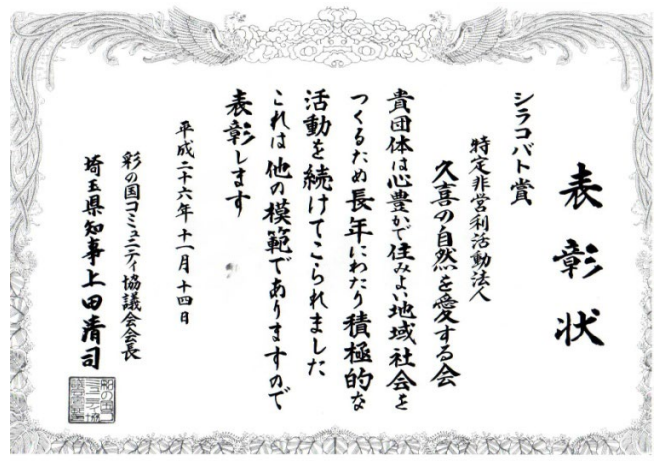 表彰状
シラコバト賞
特定非営利活動法人
久喜の自然を愛する会
貴団体は心豊かで住みよい地域社会を
つくるため長年にわたり積極的な
活動を続けてこられました
これは他の模範でありますので
表彰します
平成二十六年十一月十四日
彩の国コミュニティ協議会会長
埼玉県知事上田清司